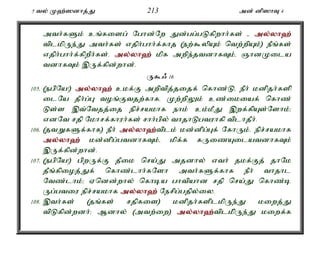 5 வல் முஹ்ஸனாத்து 213 அன் னிஸாவு 4
அவர்களும் உங்களைப் போன்றே துன்பப்படுகிறார்கள் - அல்லாஹ்
விடமிருந்து அவர்கள் எதிர்பார்க்காத (நற்கூலியும் வெற்றியும்) நீங்கள்
எதிர்பார்க்கிறீர்கள். அல்லாஹ் மிக அறிந்தவனாகவும், ஞானமுடைய
வனாகவும் இருக்கின்றான்.
ருகூஃ 16
105. (நபியே) அல்லாஹ் உமக்கு அறிவித்ததைக் கொண்டு, நீர் மனிதர்களி
டையே தீர்ப்பு வழங்குவதற்காக, முற்றிலும் உண்மையைக் கொண்
டுள்ள இவ்வேதத்தை நிச்சயமாக நாம் உம்மீது இறக்கியுள்ளோம்;
எனவே சதி மோசக்காரர்கள் சார்பில் வாதாடுபவராகி விடாதீர்.
106. (தவறுகளுக்காக) நீர் அல்லாஹ்விடம் மன்னிப்புக் கோரும். நிச்சயமாக
அல்லாஹ் மன்னிப்பவனாகவும், மிக்க கருணையுடையவனாகவும்
இருக்கின்றான்.
107. (நபியே) பிறருக்கு தீமை செய்து அதனால் எவர் தமக்குத் தாமே
தீங்கிழைத்துக் கொண்டார்களோ அவர்களுக்காக நீர் வாதாட
வேண்டாம்; ஏனென்றால் கொடிய பாவியான சதி செய்து கொண்டி
ருப்பவரை நிச்சயமாக அல்லாஹ் நேசிப்பதில்லை.
108. இவர்கள் (தங்கள் சதிகளை) மனிதர்களிடமிருந்து மறைத்து
விடுகின்றனர்; ஆனால் (அவற்றை) அல்லாஹ்விடமிருந்து மறைக்க